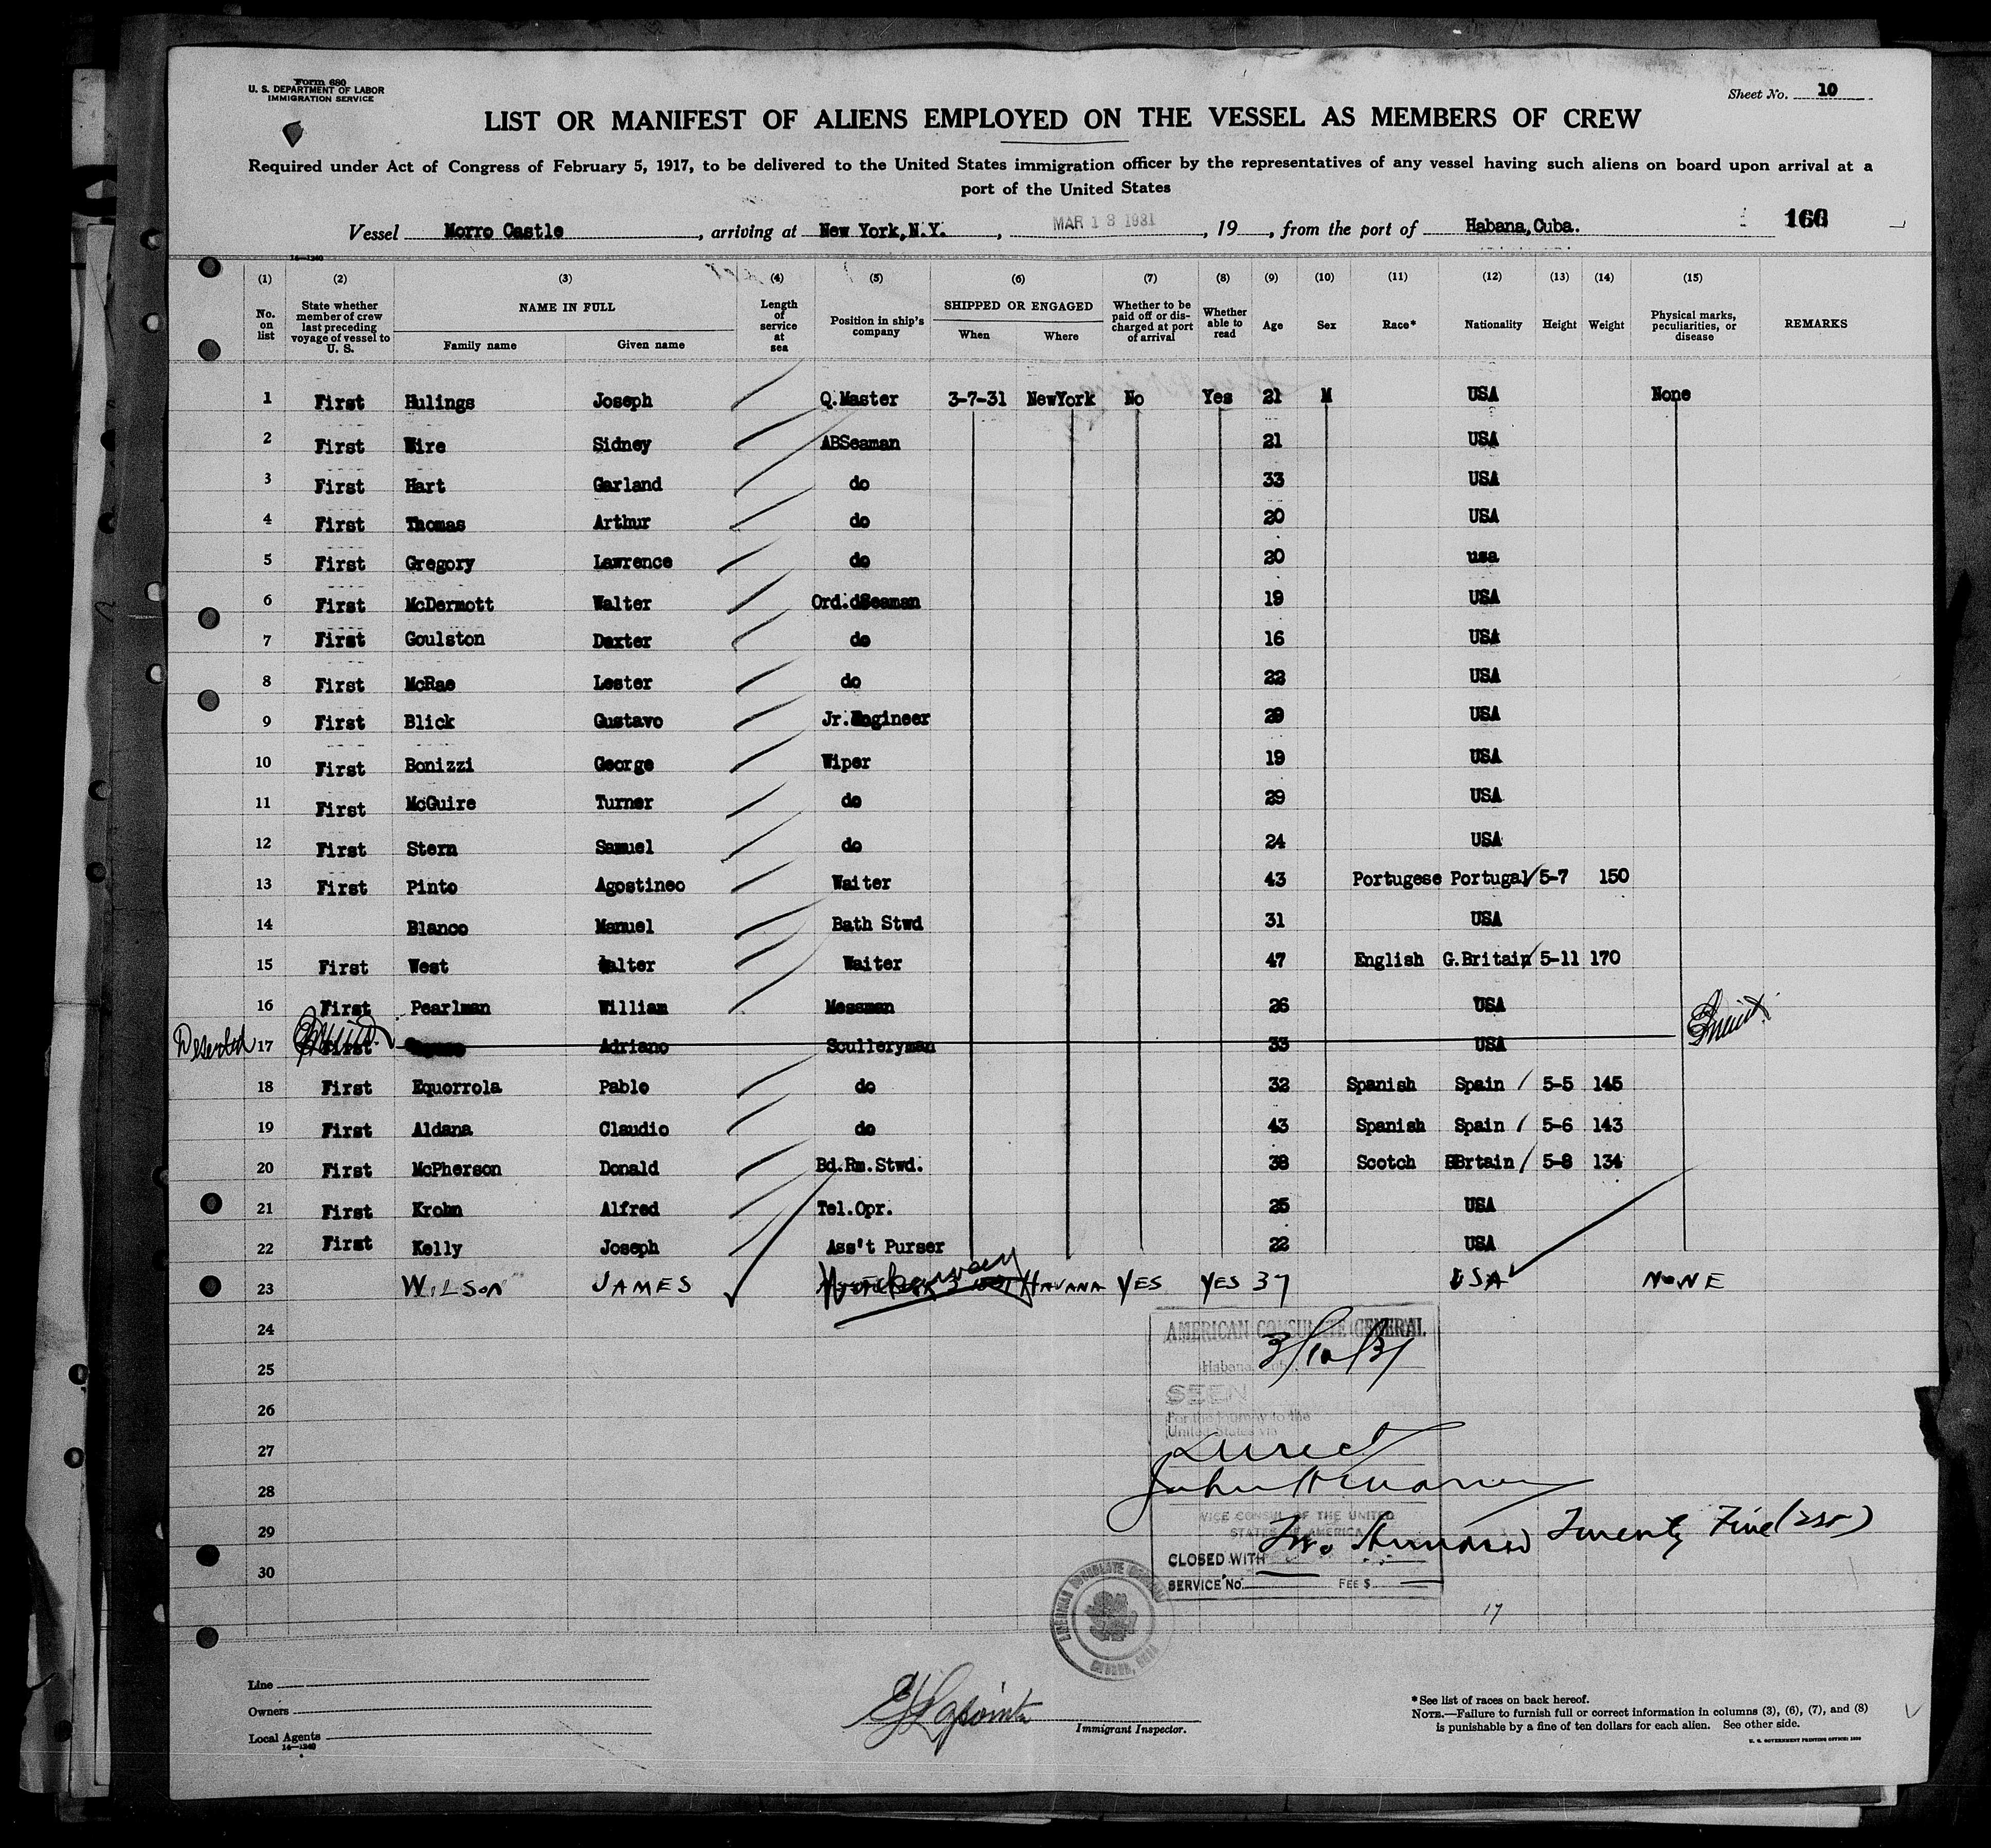 Form 680
U. S. DEPARTMENT OF LABOR
IMMIGRATION SERVICE
Sheet No. 10
LIST OR MANIFEST OF ALIENS EMPLOYED ON THE VESSEL AS MEMBERS OF CREW
Required under Act of Congress of February 5, 1917, to be delivered to the United States immigration officer by the representatives of any vessel having such aliens on board upon arrival at a
port of the United States
Vessel Morro Castle, arriving at New York,N.Y., MAR 13 1931, 19, from the port of Habana,Cuba. 160
14—1240
(1) (2) (3) (4) (5) (6) (7) (8) (9) (10) (11) (12) (13) (14) (15)
No. on list State whether member of crew last preceding voyage of vessel to U. S. NAME IN FULL Family name Given name Length of service at sea Position in ship's company SHIPPED OR ENGAGED When Where Whether to be paid off or discharged at port of arrival Whether able to read Age Sex Race* Nationality Height Weight Physical marks, peculiarities, or disease REMARKS
1 First Hulings Joseph Q.Master 3-7-31 NewYork No Yes 21 M USA None
2 First Wire Sidney ABSeaman 21 USA
3 First Hart Garland do 33 USA
4 First Thomas Arthur do 20 USA
5 First Gregory Lawrence do 20 usa
6 First McDermott Walter Ord.dSeaman 19 USA
7 First Goulston Dexter do 16 USA
8 First McRae Lester do 22 USA
9 First Blick Gustavo Jr.Engineer 29 USA
10 First Bonizzi George Wiper 19 USA
11 First McGuire Turner do 29 USA
12 First Stern Samuel do 24 USA
13 First Pinto Agostineo Waiter 43 Portugese Portugal 5-7 150
14 Blanco Manuel Bath Stwd 31 USA
15 First West Walter Waiter 47 English G.Britain 5-11 170
16 First Pearlman William Messman 26 USA
Deserted 17 First Adriano Sculleryman 33 USA
18 First Equorrola Pablo do 32 Spanish Spain 5-5 145
19 First Aldana Claudio do 43 Spanish Spain 5-6 143
20 First McPherson Donald Bd.Rm.Stwd. 38 Scotch BBrtain 5-8 134
21 First Krohn Alfred Tel.Opr. 25 USA
22 First Kelly Joseph Ass't Purser 22 USA
23 WILSON JAMES Workaway HAVANA YES YES 37 USA NONE
24
25
26
27
28
29
30
AMERICAN CONSULATE GENERAL
Habana, Cuba 3/10/31
SEEN
For the journey to the
United States via
Direct
VICE CONSUL OF THE UNITED
STATES OF AMERICA
Two Hundred Twenty Five (225)
CLOSED WITH
SERVICE No. FEE $
17
AMERICAN CONSULATE GENERAL
HABANA, CUBA
Line
Owners
Local Agents
14—1240
E J Lapointe
Immigrant Inspector.
* See list of races on back hereof.
NOTE.—Failure to furnish full or correct information in columns (3), (6), (7), and (8)
is punishable by a fine of ten dollars for each alien. See other side.
U. S. GOVERNMENT PRINTING OFFICE: 1930